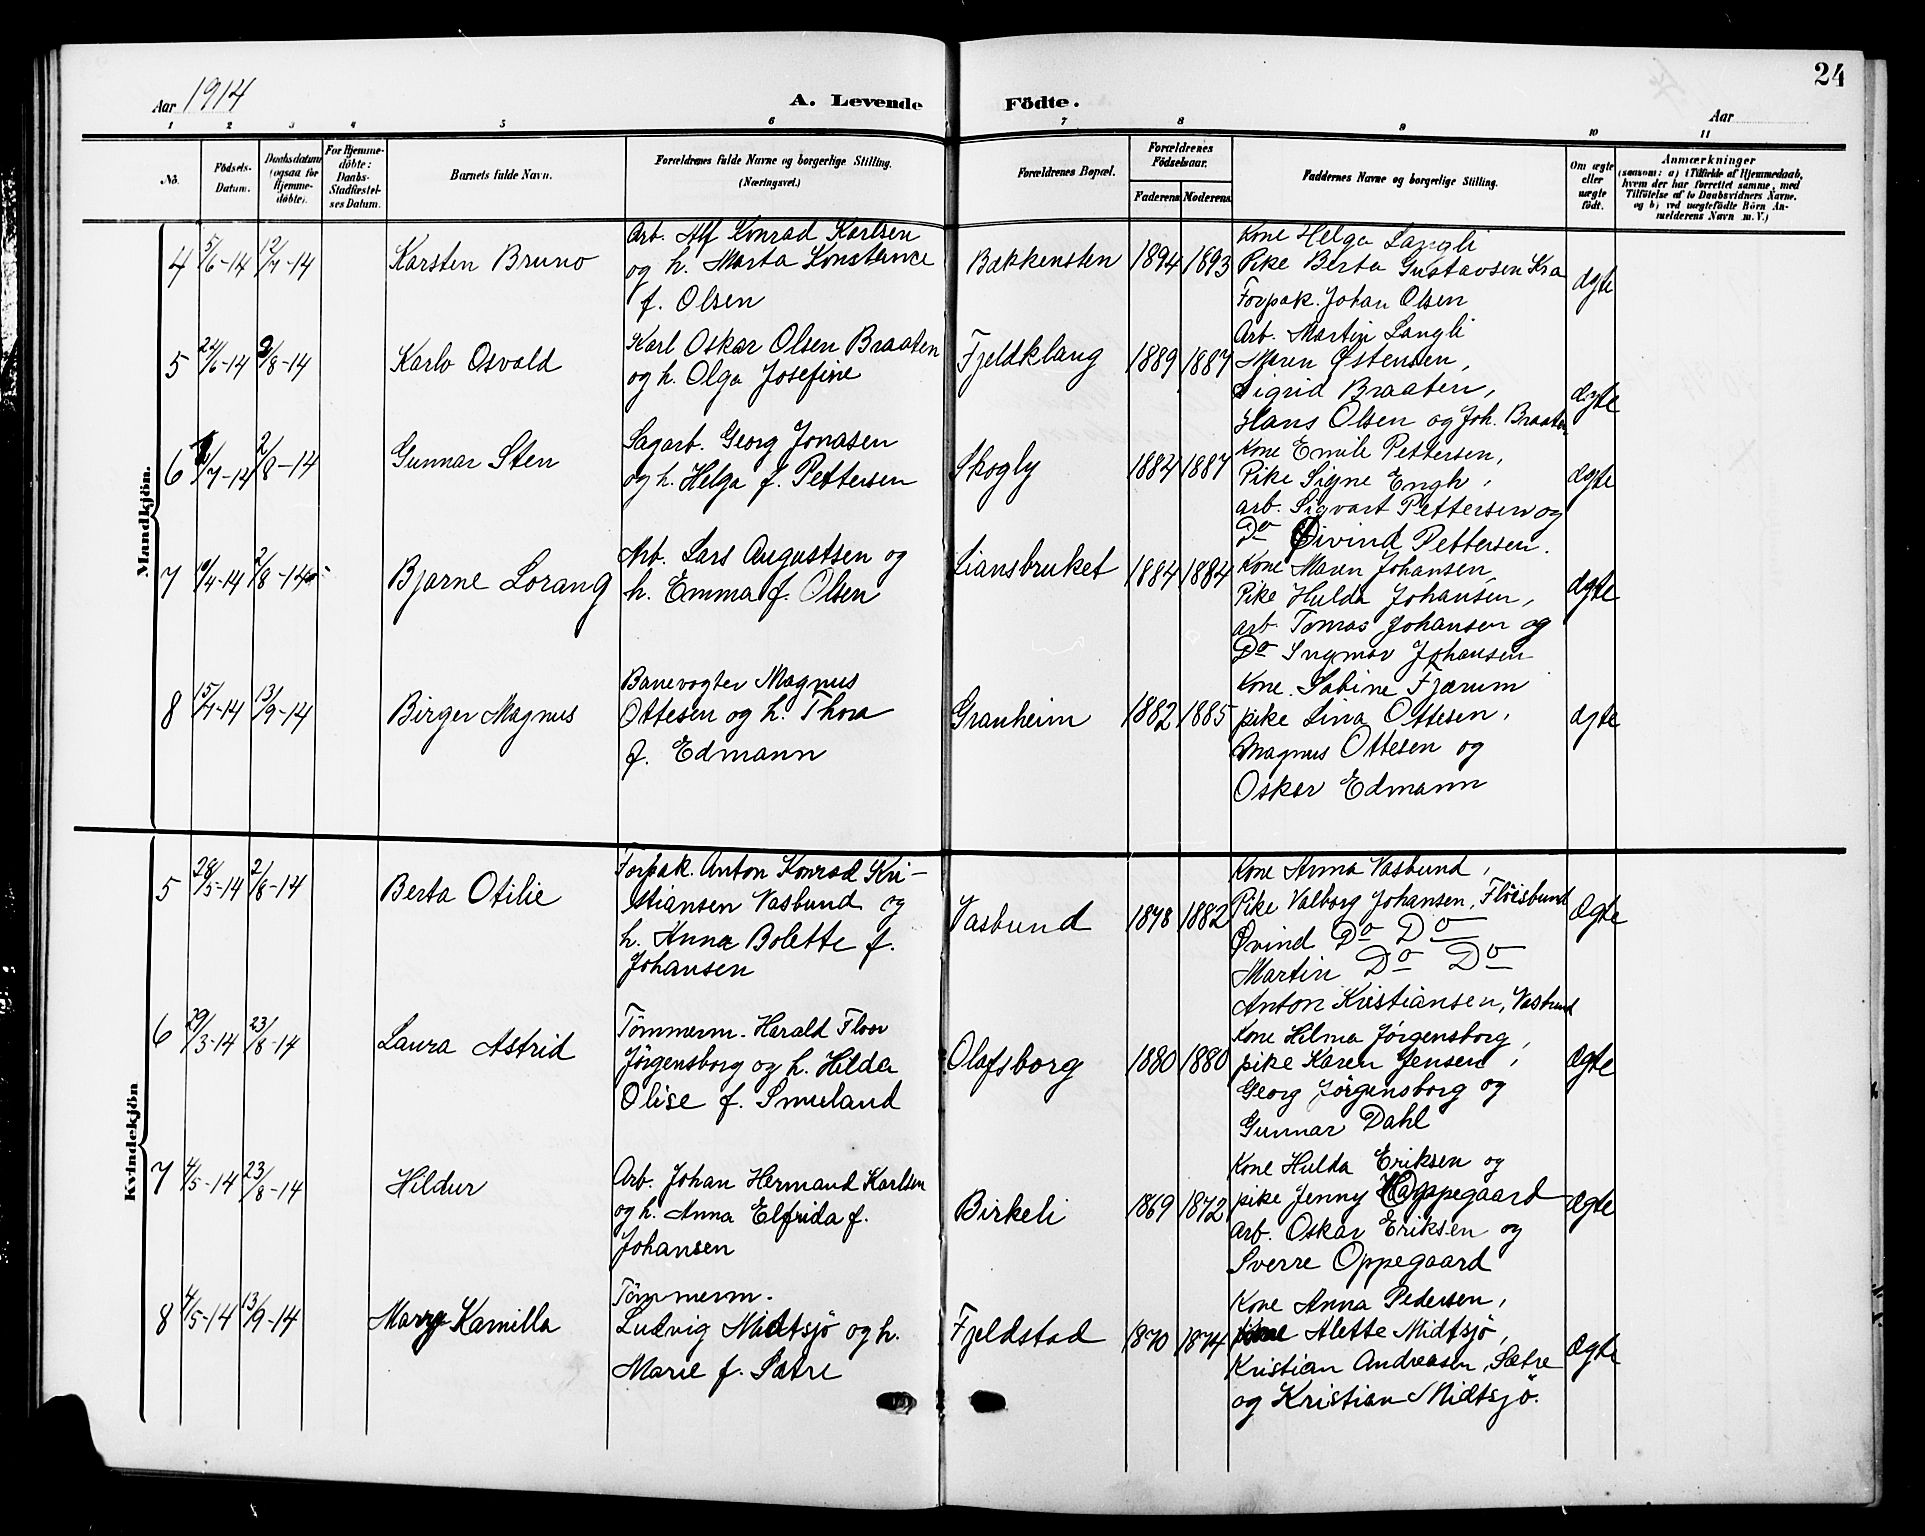 24
Aar 1914
A. Levende Födte.
Aar
1 2 3 4 5 6 7 8 9 10 11
No.
Födsels-
Datum.
Daabsdatum
(ogsaa for
Hjemme-
döbte).
For Hjemme-
döbte:
Daabs-
Stadfæstel-
ses Datum.
Barnets fulde Navn.
Forældrenes fulde Navne og borgerlige Stilling.
(Næringsvei.)
Forældrenes Bopæl.
Forældrenes
Födselsaar.
Faderens
Moderens
Faddernes Navne og borgerlige Stilling.
Om ægte
eller
uægte
født.
Anmærkninger
(saasom: a) i Tilfælde af Hjemmedaab,
hvem der har forrettet samme, med
Tilföielse af to Daabsvidners Navne.
og b) ved uægtefödte Börn An-
melderens Navn m. V.)
Mandkjön.
4 5/6-14 12/7-14
Karsten Bruno
Arb. Alf Konrad Karlsen
og h. Marta Konstance
f. Olsen
Bakkensten 1894 1893
Kone Helga Langli
Pike Berta Gustavsen Kra
Forpak. Johan Olsen
Arb. Martin Langli
ægte
5 24/6-14 2/8-14
Karlo Osvald
Karl Oskar Olsen Braaten
og h. Olga Josefine
Fjeldklang 1889 1887
Maren Østensen,
Sigrid Braaten,
Hans Olsen og Joh. Braaten
ægte
6 /7-14 2/8-14
Gunnar Sten
Sagarb. Georg Jonasen
og h. Helga f. Pettersen
Skogly 1884 1887
Kone Emile Pettersen,
Pike Signe Engh,
arb. Sigvart Pettersen og
Do Øivind Pettersen.
ægte
7 /4-14 2/8-14
Bjarne Lorang
Arb. Lars Augustsen og
h. Emma f. Olsen
Liansbruket 1884 1884
Kone Maren Johansen,
Pike Hulda Johansen,
arb. Tomas Johansen og
Do Ingmar Johansen
ægte
8 15/7-14 13/9-14
Birger Magnus
Banevogter Magnus
Ottesen og h. Thora
f. Edmann
Granheim 1882 1885
Kone. Sabine Fjærum
pike Lina Ottesen,
Magnus Ottesen og
Oskar Edmann
ægte
Kvindekjön
5 28/5-14 2/8-14
Berta Otilie
Forpak. Anton Konrad Kri-
stiansen Vasbund og
h. Anna Bolette f.
Johansen
Vasbund 1878 1882
Kone Anna Vasbund,
Pike Valborg Johansen, Fløisbund
Øvind Do Do
Martin Do Do
Anton Kristiansen, Vasbund
Ægte
6 29/3-14 23/8-14
Laura Astrid
Tömmerm. Harald Floor
Jørgensborg og h. Hilda
Olise f. Smeland
Olafsborg 1880 1880
Kone Hilma Jørgensborg,
pike Karen Jensen,
Georg Jørgensborg og
Gunnar Dahl
Ægte
7 4/5-14 23/8-14
Hildur
Arb. Johan Hermand Karlsen
og h. Anna Elfrida f.
Johansen
Birkeli 1869 1872
Kone Hulda Eriksen og
pike Jenny Oppegaard
Arb. Oskar Eriksen og
Sverre Oppegaard
Ægte
8 4/5-14 13/9-14
Mary Kamilla
Tömmerm.
Ludvig Midtsjö og h.
Marie f. Sætre
Fjeldstad 1870 1874
Kone Anna Pedersen,
Alette Midtsjö,
Kristian Andreasen, Sætre
og Kristian Midtsjö.
Ægte